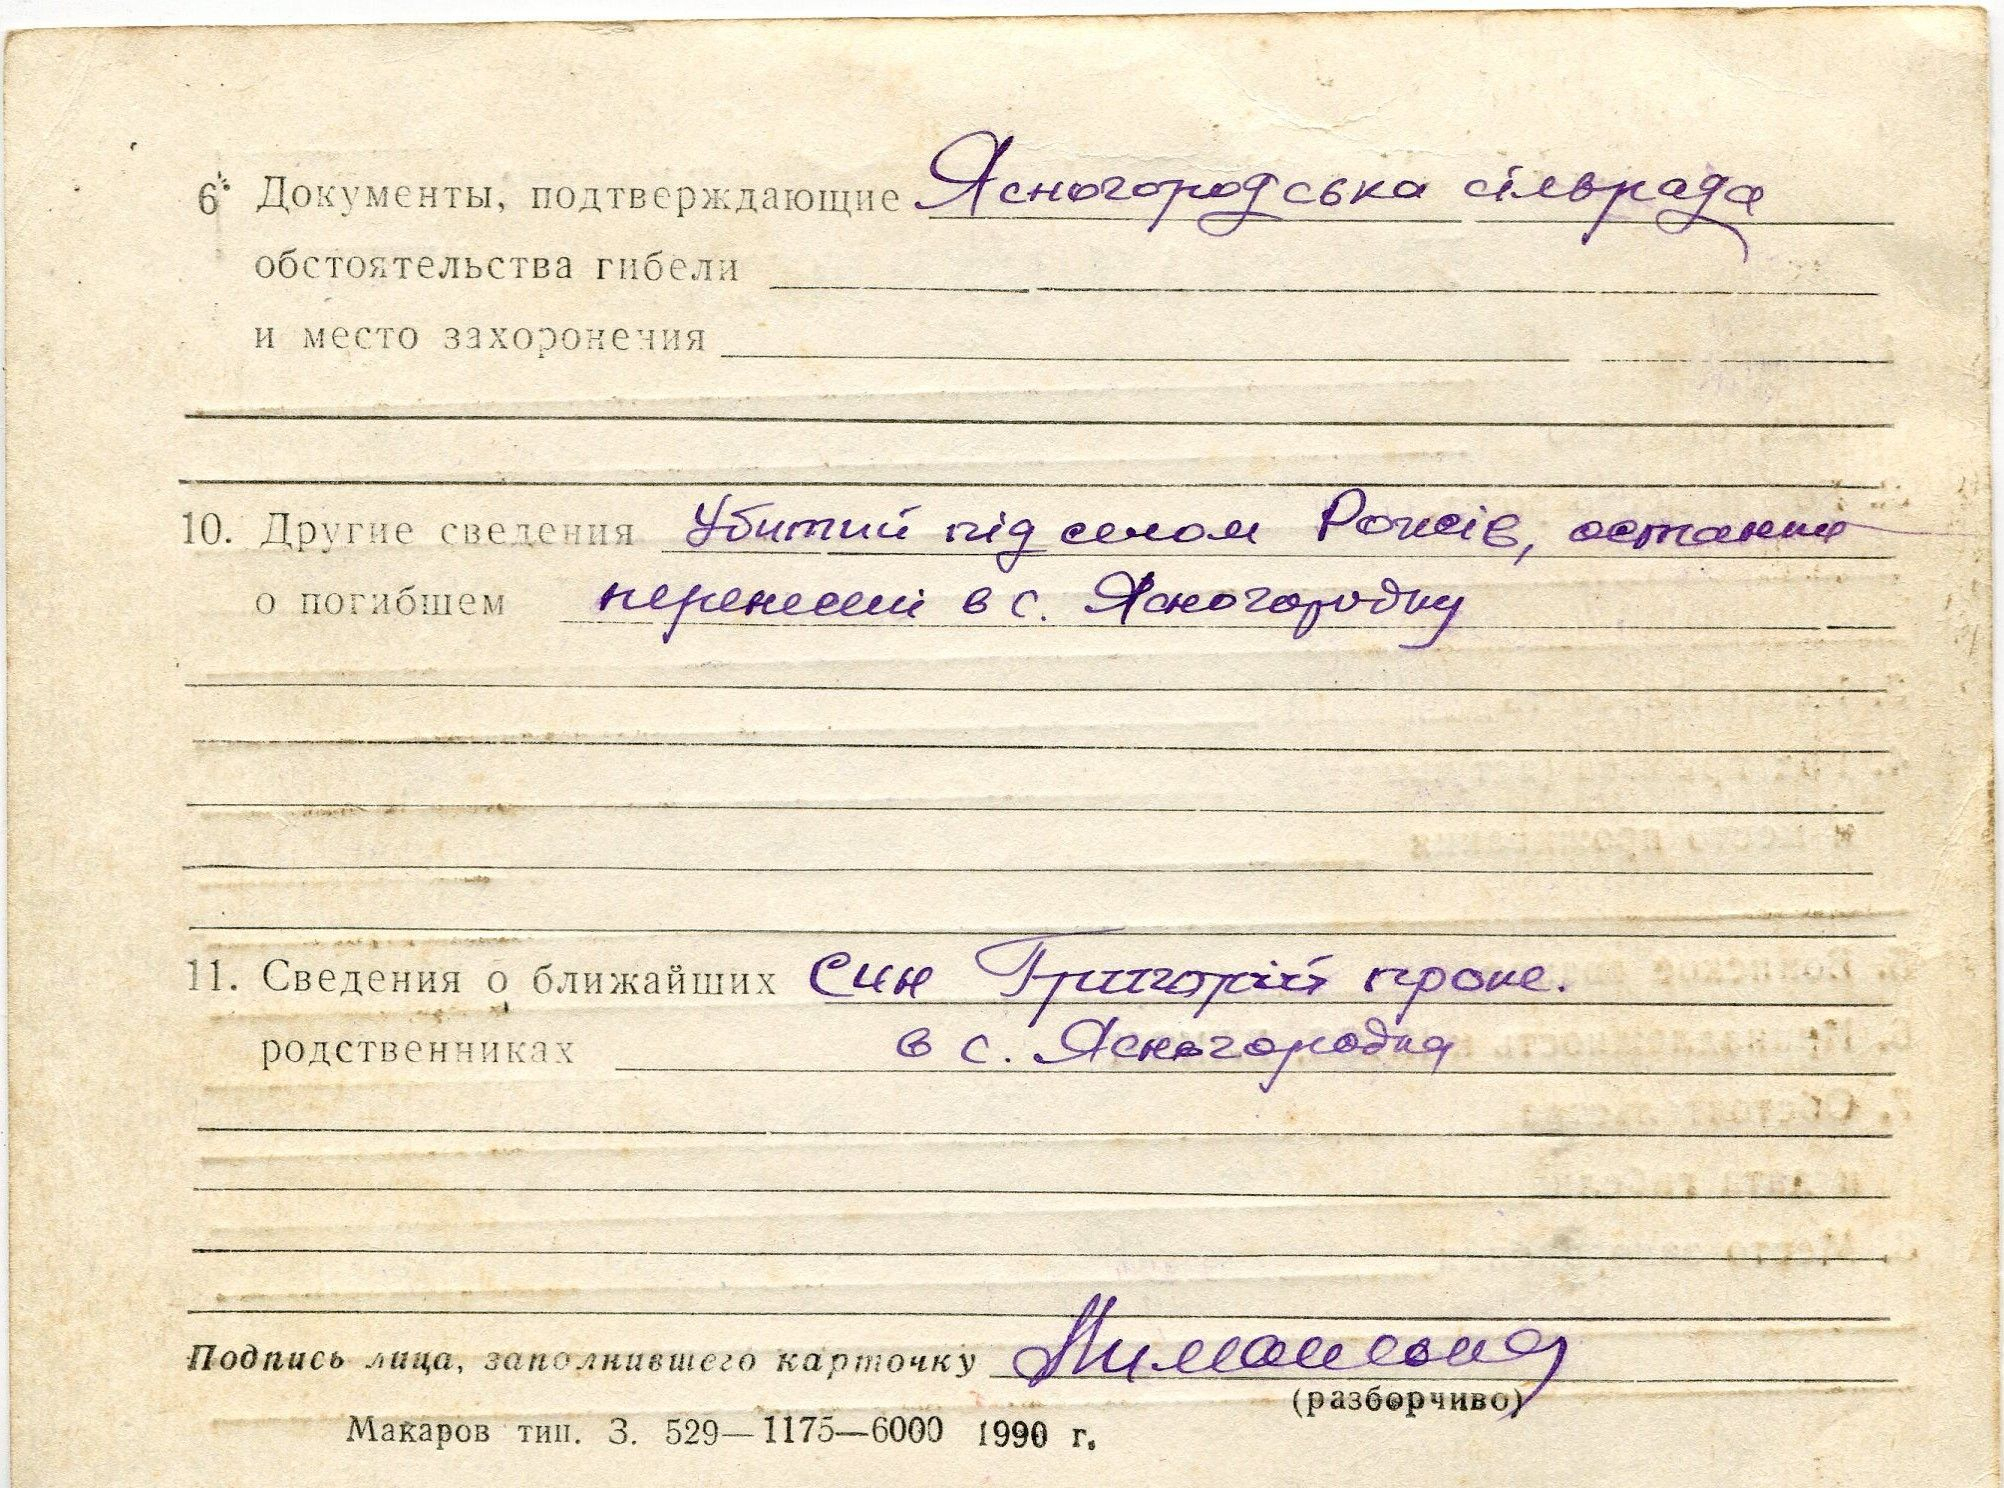 6. Документы, подтверждающие Ясногородська сільрада
обстоятельства гибели
и место захоронения
10. Другие сведения Убитий під селом Рожів, останки
о погибшем перенесені в с. Ясногородку
11. Сведения о ближайших Син Григорій прож.
родственниках в с. Ясногородка
Подпись лица, заполнившего карточку
(разборчиво)
Макаров тип. З. 529—1175—6000 1990 г.